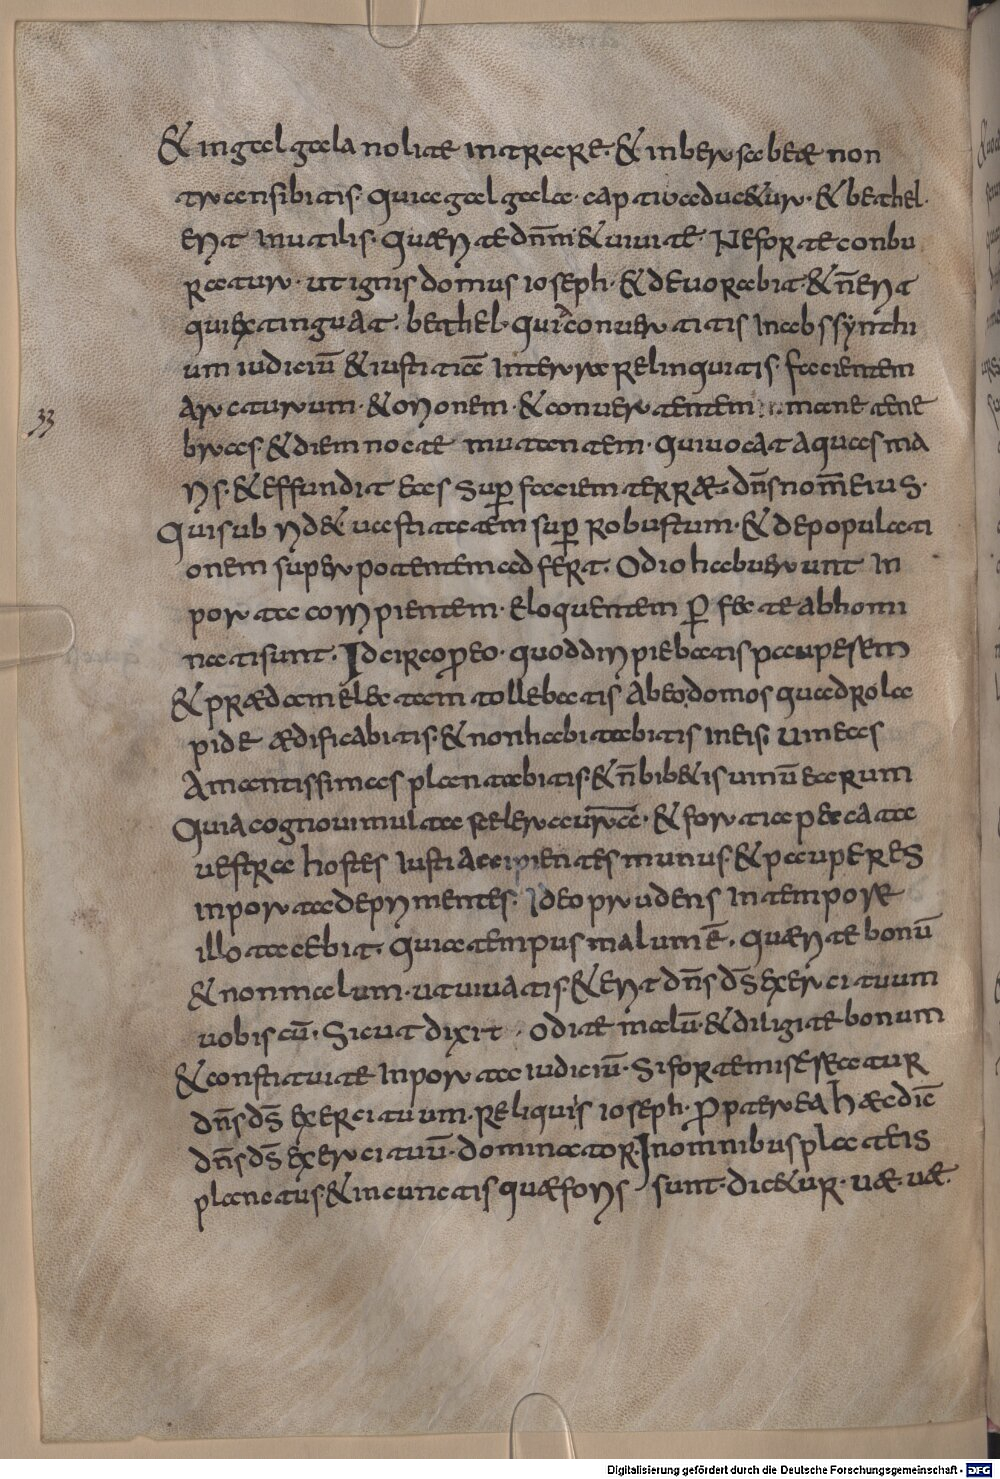 & in galgala nolite intrare · & in bersabeae non
transibitis · Quia galgala · captiua duc&ur · & bethel ·
erit inutilis · Quaerite dnm & uiuite · Ne forte conbu
ratur · ut ignis domus ioseph · & deuorabit · & n erit
qui extinguat · bethel · qui conuertitis in abssynthi
um iudiciū & iustitiā in terra relinquitis · facientem
arcturum · & orionem · & conuertentem in mane tene
bras · & diem nocte mutantem · Qui uocat aquas ma
ris · & effundit eas sup faciem terrae · dns nom eius ·
Qui subrid& uastitatem sup robustum · & depopulati
onem super potentem adfert · Odio habuerunt in
porta corripientem · & loquentem p fecte abhomi
nati sunt · Idcirco p eo · quod diripiebatis pauperem
& praedam electam tollebatis ab eo · domos quadro la
pide aedificabitis · & non habitabitis in eis · uineas
Amantissimas plantabitis · & n bib&is uinū earum
Quia cognoui multa scelera urā · & fortia peccata
uestra hostes iusti accipientes munus · & pauperes
in porta deprimentes · Ideo prudens in tempore
illo tacebit · Quia tempus malum ē · Quaerite bonū
& non malum · ut uiuatis · & erit dns ds exercituum
uobiscū · Sicut dixit · odite malū · & diligite bonum
& constituite in porta iudiciū · Si forte misereatur
dns ds exercituum · reliquis ioseph · Propterea haec dic
dns ds exercituū · dominator · In omnibus plateis
planctus · & in cunctis quae foris sunt · dic&ur · uae · uae ·
33
Digitalisierung gefördert durch die Deutsche Forschungsgemeinschaft - DFG